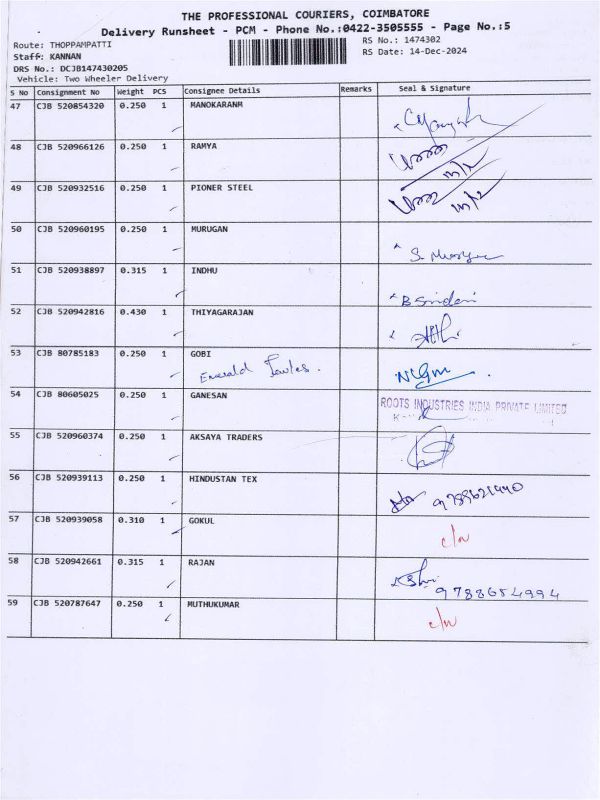 THE PROFESSIONAL COURIERS, COIMBATORE
Delivery Runsheet - PCM - Phone No.:0422-3505555 - Page No.:5
Route: THOPPAMPATTI RS No.: 1474302
Staff: KANNAN RS Date: 14-Dec-2024
DRS No.: DCJB147430205
Vehicle: Two Wheeler Delivery
S No Consignment No Weight PCS Consignee Details Remarks Seal & Signature
47 CJB 520854320 0.250 1 MANOKARANM
48 CJB 520966126 0.250 1 RAMYA
49 CJB 520932516 0.250 1 PIONER STEEL
50 CJB 520960195 0.250 1 MURUGAN
51 CJB 520938897 0.315 1 INDHU
B Sridevi
52 CJB 520942816 0.430 1 THIYAGARAJAN
53 CJB 80785183 0.250 1 GOBI
Emerald
54 CJB 80605025 0.250 1 GANESAN
ROOTS INDUSTRIES INDIA PRIVATE LIMITED
55 CJB 520960374 0.250 1 AKSAYA TRADERS
56 CJB 520939113 0.250 1 HINDUSTAN TEX
9789621440
57 CJB 520939058 0.310 1 GOKUL
c/n
58 CJB 520942661 0.315 1 RAJAN
9788654994
59 CJB 520787647 0.250 1 MUTHUKUMAR
c/n